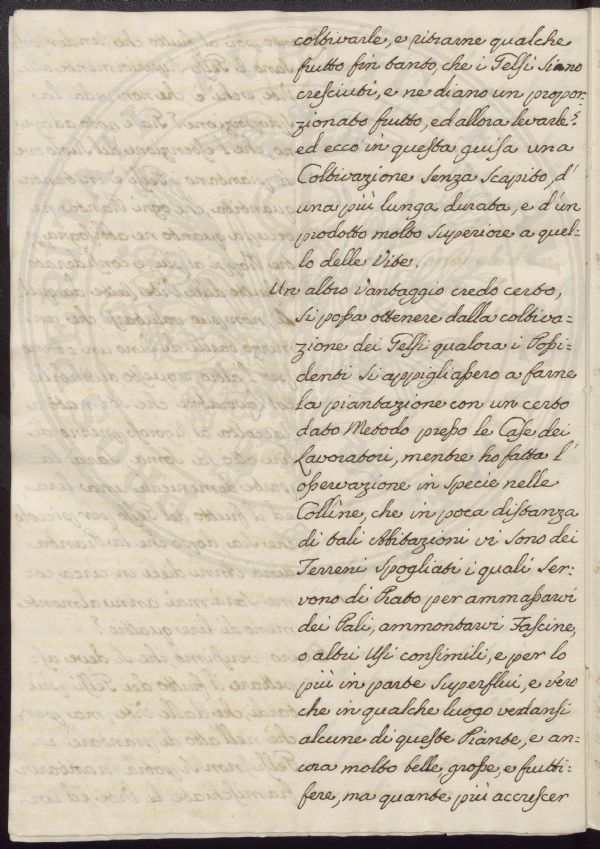 coltivarle, e ritrarne qualche
frutto fin tanto, che i Gelsi siano
cresciuti, e ne diano un propor=
zionato frutto, ed allora levarle:
ed ecco in questa guisa una
Coltivazione senza scapito, d'
una più lunga durata, e d'un
prodotto molto superiore a quel=
lo delle Vite.
Un altro vantaggio credo certo,
si possa ottenere dalla coltiva=
zione dei Gelsi qualora i Possi=
denti si appigliassero a farne
la piantazione con un certo
dato Metodo presso le Case dei
Lavoratori, mentre ho fatta l'
osservazione in specie nelle
Colline, che in poca distanza
di tali Abitazioni vi sono dei
Terreni spogliati i quali ser=
vono di Prato per ammassarvi
dei Pali, ammontarvi Fascine,
o altri Usi consimili, e per lo
più in parte superflui, e vero
che in qualche luogo vedansi
alcune di queste Piante, e an=
cora molto belle grosse, e frutti=
fere, ma quante più accrescer